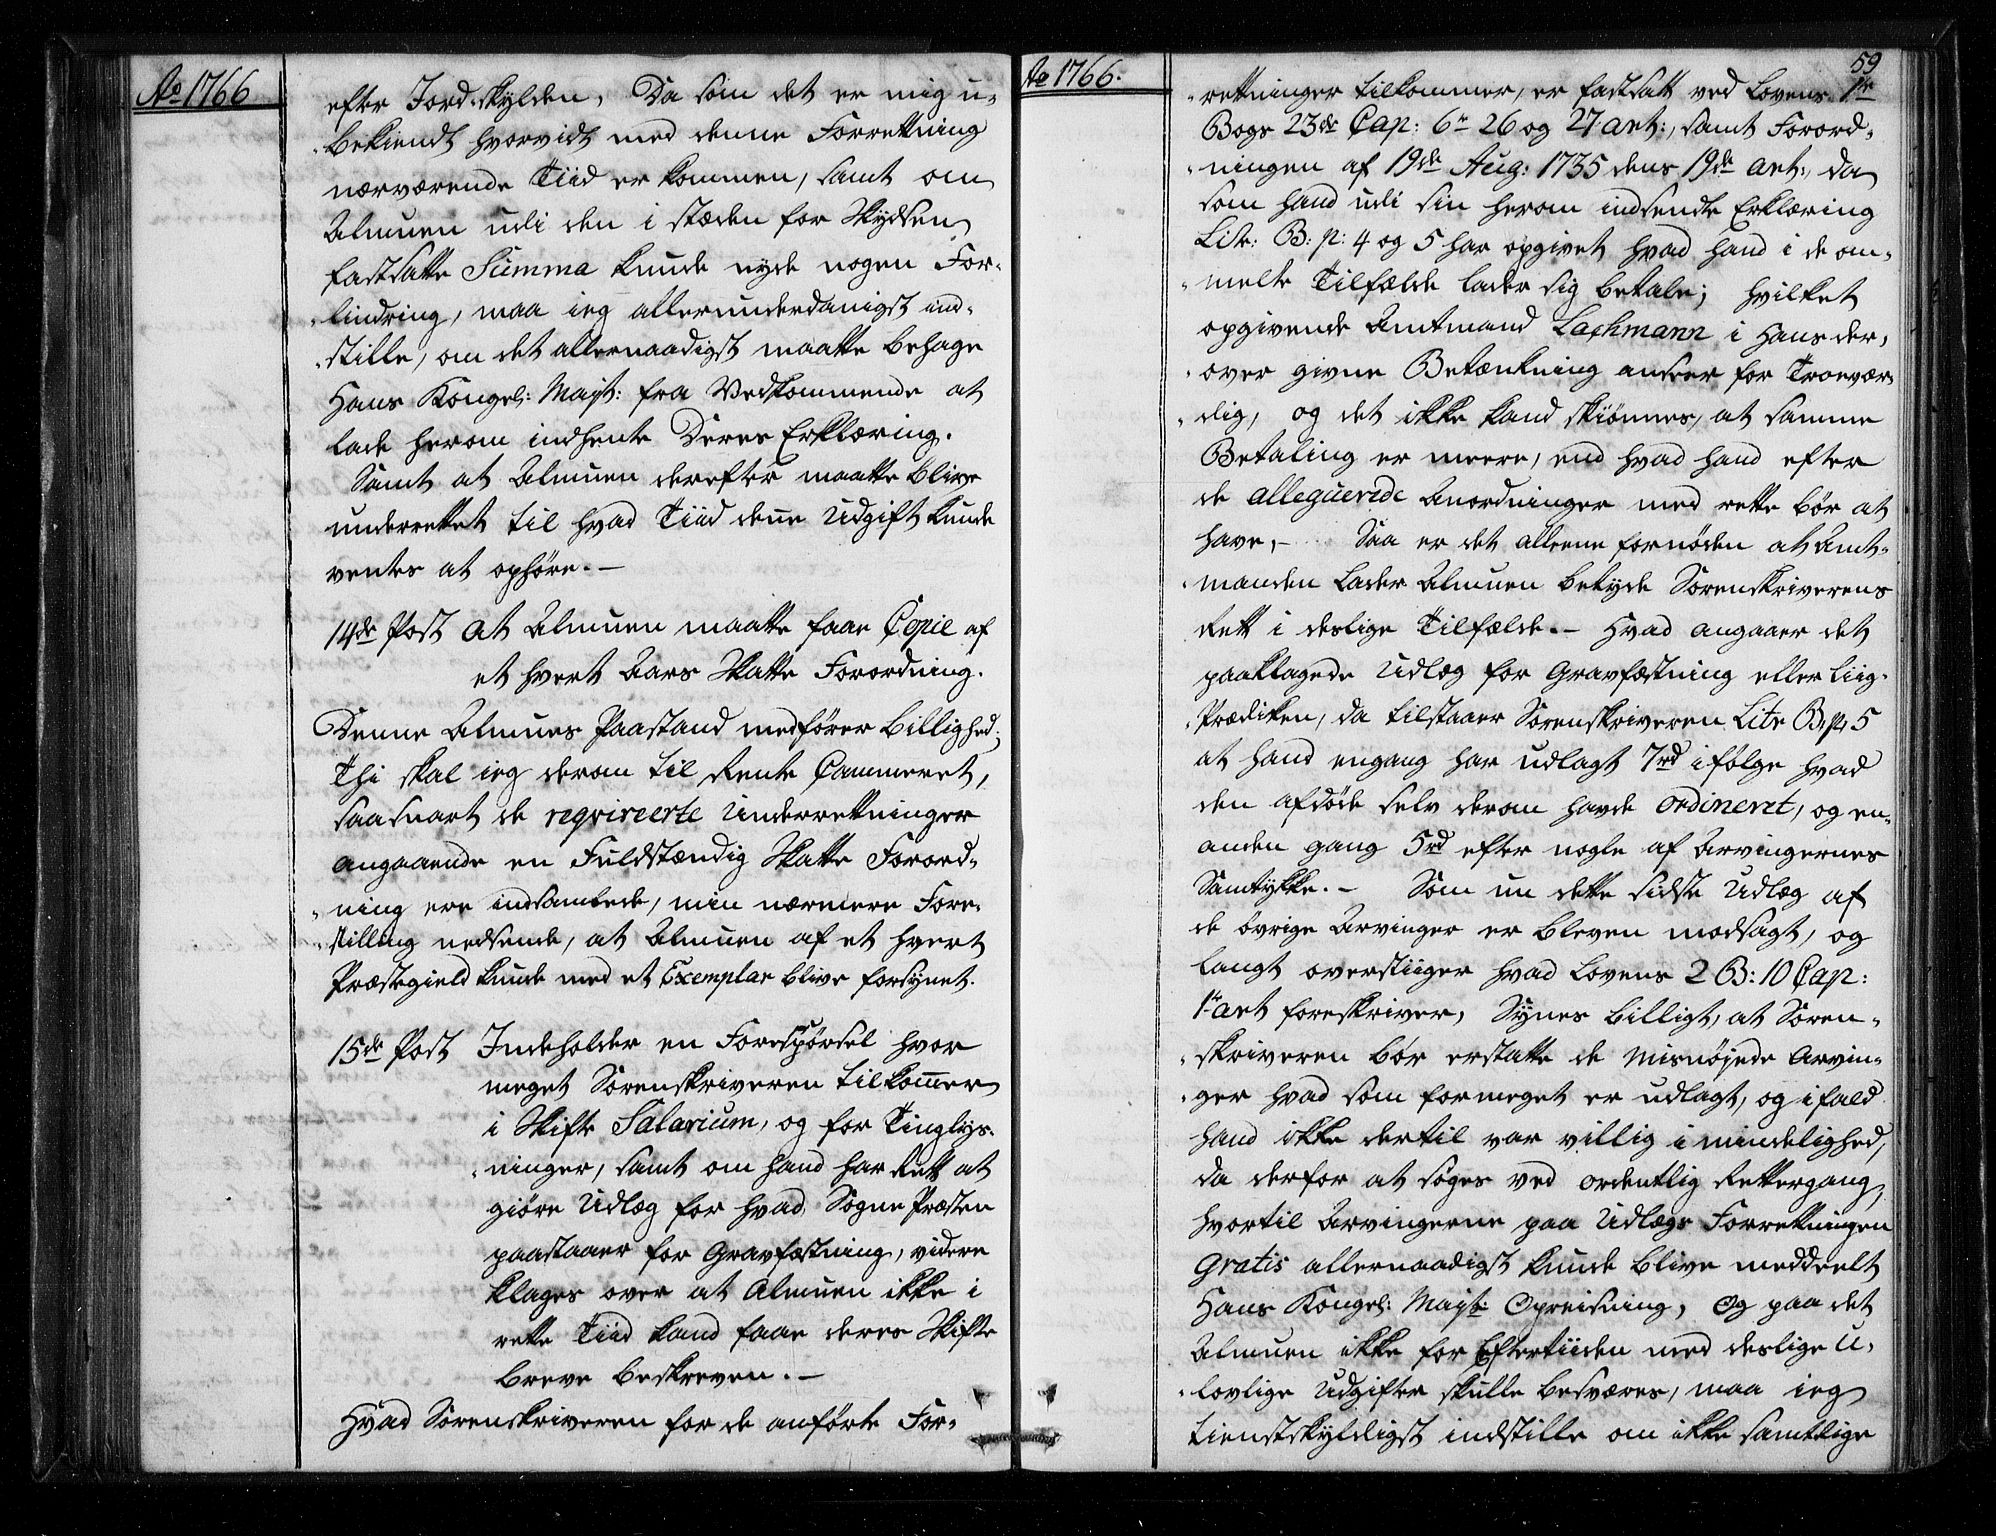 Ao 1766
efter Jord-skylden, Da som det er mig u-
bekiendt hvorvidt med denne Forretning
nærværende Tiid er kommen, samt om
Almuen udi den i stæden for Skydsen
fastsatte Summa kunde nyde nogen For-
lindring, maa ieg allerunderdanigst ind-
stille, om det allernaadigst maatte behage
Hans Kongel: Mayt: fra Vedkommende at
lade herom indhente Deres Erklæring.
Samt at Almuen derefter maatte blive
underrettet til hvad Tiid dene Udgift kunde
ventes at ophøre.-
14de Post at Almuen maatte faae Copie af
et hvert Aars Skatte Forordning.
Denne Almues Paastand medfører billighed;
Thi skal ieg derom til Rente Cammeret,
saasnart de reqvireerte Underretninger
angaaende en Fuldstændig Skatte Forord-
ning ere indsamlede, min nærmere Fore-
stilling nedsende, at Almuen af et hvert
Præstegield kunde med et Exemplar blive forsynet.
15de Post Indeholder en Forespørsel hvor
meget Sorenskriveren tilkomer
i Skifte Salarium, og for Tinglys-
ninger, samt om hand har Rett at
giøre Udlæg for hvad Sogne Præsten
paastaaer for Gravfæstning, videre
klages over at Almuen ikke i
rette Tiid kand faae deres Skifte
breve beskreven.-
Hvad Sorenskriveren for de anførte For-
Ao 1766.
59
rettninger tilkommer, er fastsatt ved Lovens 1te
Bogs 23de Cap: 6te 26 og 27 art:, samt Forord-
ningen af 19de Aug: 1735 dens 19de art:, da
som hand udi sin herom indsendte Erklæring
Litr: B: p: 4 og 5 har opgivet hvad hand i de om-
melte Tilfælde lader sig betale; hvilket
opgivende Amtmand Lachmann i Hans der-
over givne Betænkning anseer for Troevær-
dig, og det ikke kand skiønnes, at samme
Betaling er meere, end hvad hand efter
de alleguerede Anordninger med rette bør at
have,- Saa er det alleene fornøden at Amt-
manden lader Almuen betyde Sorenskriverens
Rett i deslige Tilfælde.- Hvad angaaer det
paaklagede Udlæg for Gravfæstning eller Liig-
Prædiken, da tilstaaer Sorenskriveren Litr B: p: 5
at hand engang har udlagt 7rd ifølge hvad
den afdøde selv derom havde ordineret, og en-
anden gang 5rd efter nogle af Arvingernes
Samtykke.- Som nu dette sidste Udlæg af
de øvrige Arvinger er bleven modsagt, og
langt overstiiger hvad Lovens 2 B: 10 Cap:
1te art foreskriver, Synes billigt, at Soren-
skriveren bør erstatte de misnøjede Arvin-
ger hvad som formeget er udlagt, og ifald
hand ikke dertil var villig i mindelighed,
da derfor at søges ved ordentlig Rettergang,
hvortil Arvingerne paa Udlægs Forretningen
Gratis allernaadigst kunde blive meddeelt
Hans Kongel: Mayt: Opreisning, Og paa det
Almuen ikke for Eftertiiden med deslige U-
lovlige Udgifter skulle besværes, maa ieg
tienstskyldigst indstille om ikke samtlige